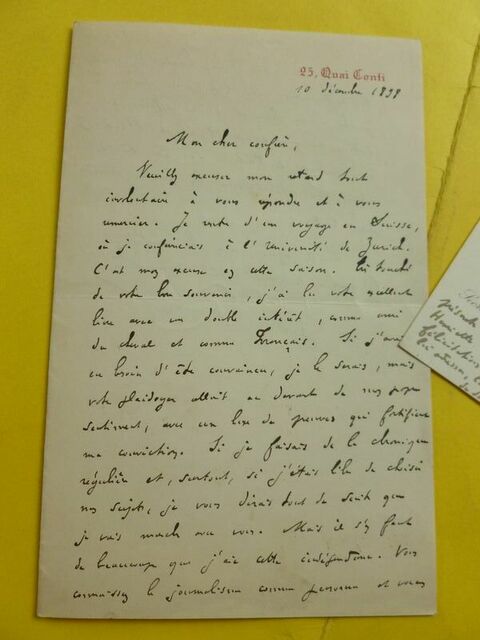 25, Quai Conti
10 décembre 1898
Mon cher confrère,
Veuillez excuser mon retard tout
involontaire à vous répondre et à vous
remercier. Je rentre d'un voyage en Suisse,
où je conférenciais à l'Université de Zurich.
C'est mon excuse en cette saison. Très touché
de votre bon souvenir, j'ai lu votre excellent
livre avec un double intérêt, comme ami
du cheval et comme Français. Si j'avais
eu besoin d'être convaincu, je le serais, mais
votre plaidoyer allait au devant de mes propres
sentiments, avec un luxe de preuves qui fortifient
ma conviction. Si je faisais de la chronique
régulière et, surtout, si j'étais libre de choisir
mes sujets, je vous dirais tout de suite que
je vais marcher avec vous. Mais il s'en faut
de beaucoup que j'aie cette indépendance. Vous
connaissez le journalisme comme personne et vous